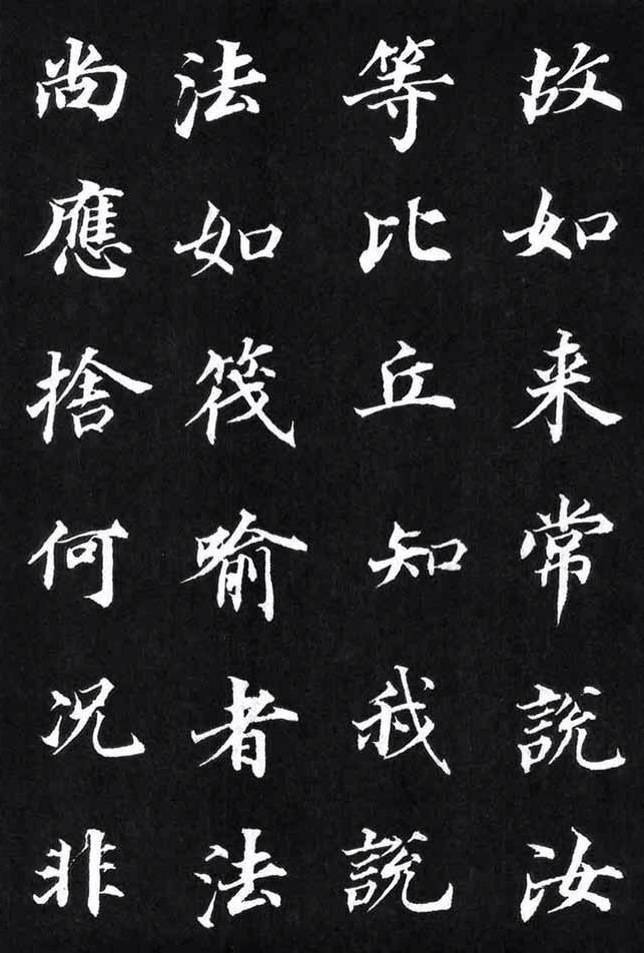 故如来常說汝
等比丘知我說
法如筏喻者法
尚應捨何况非